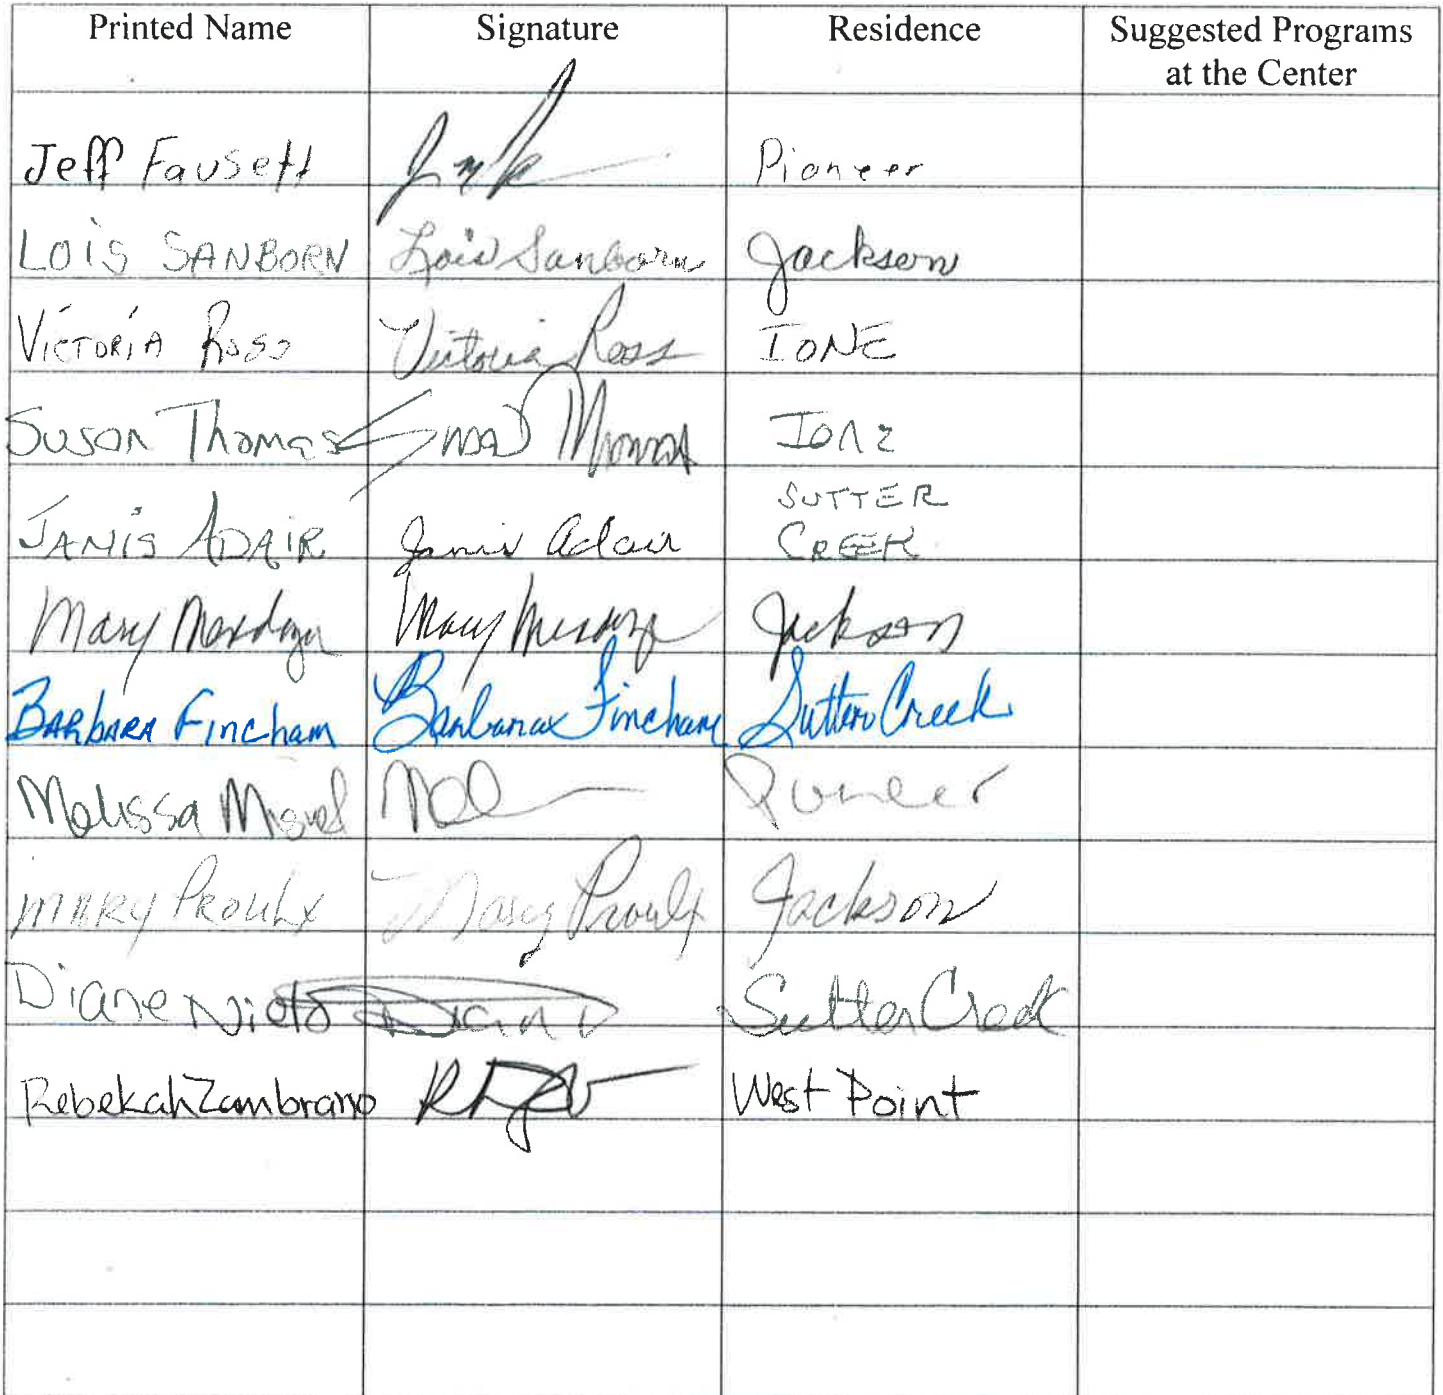 Printed Name Signature Residence Suggested Programs
at the Center
Jeff Fausett Pioneer
LOIS SANBORN Lois Sanborn Jackson
VICTORIA ROSS Victoria Ross IONE
Susan Thomas Susan Thomas Ione
SUTTER
JANIS ADAIR Janis Adair CREEK
Mary Mendoza Mary Mendoza Jackson
BARbARA Fincham Barbara Fincham Sutter Creek
Melissa Pioneer
MARY PROULX Mary Proulx Jackson
Diane Nieto Diane Sutter Creek
Rebekah Zambrano West Point